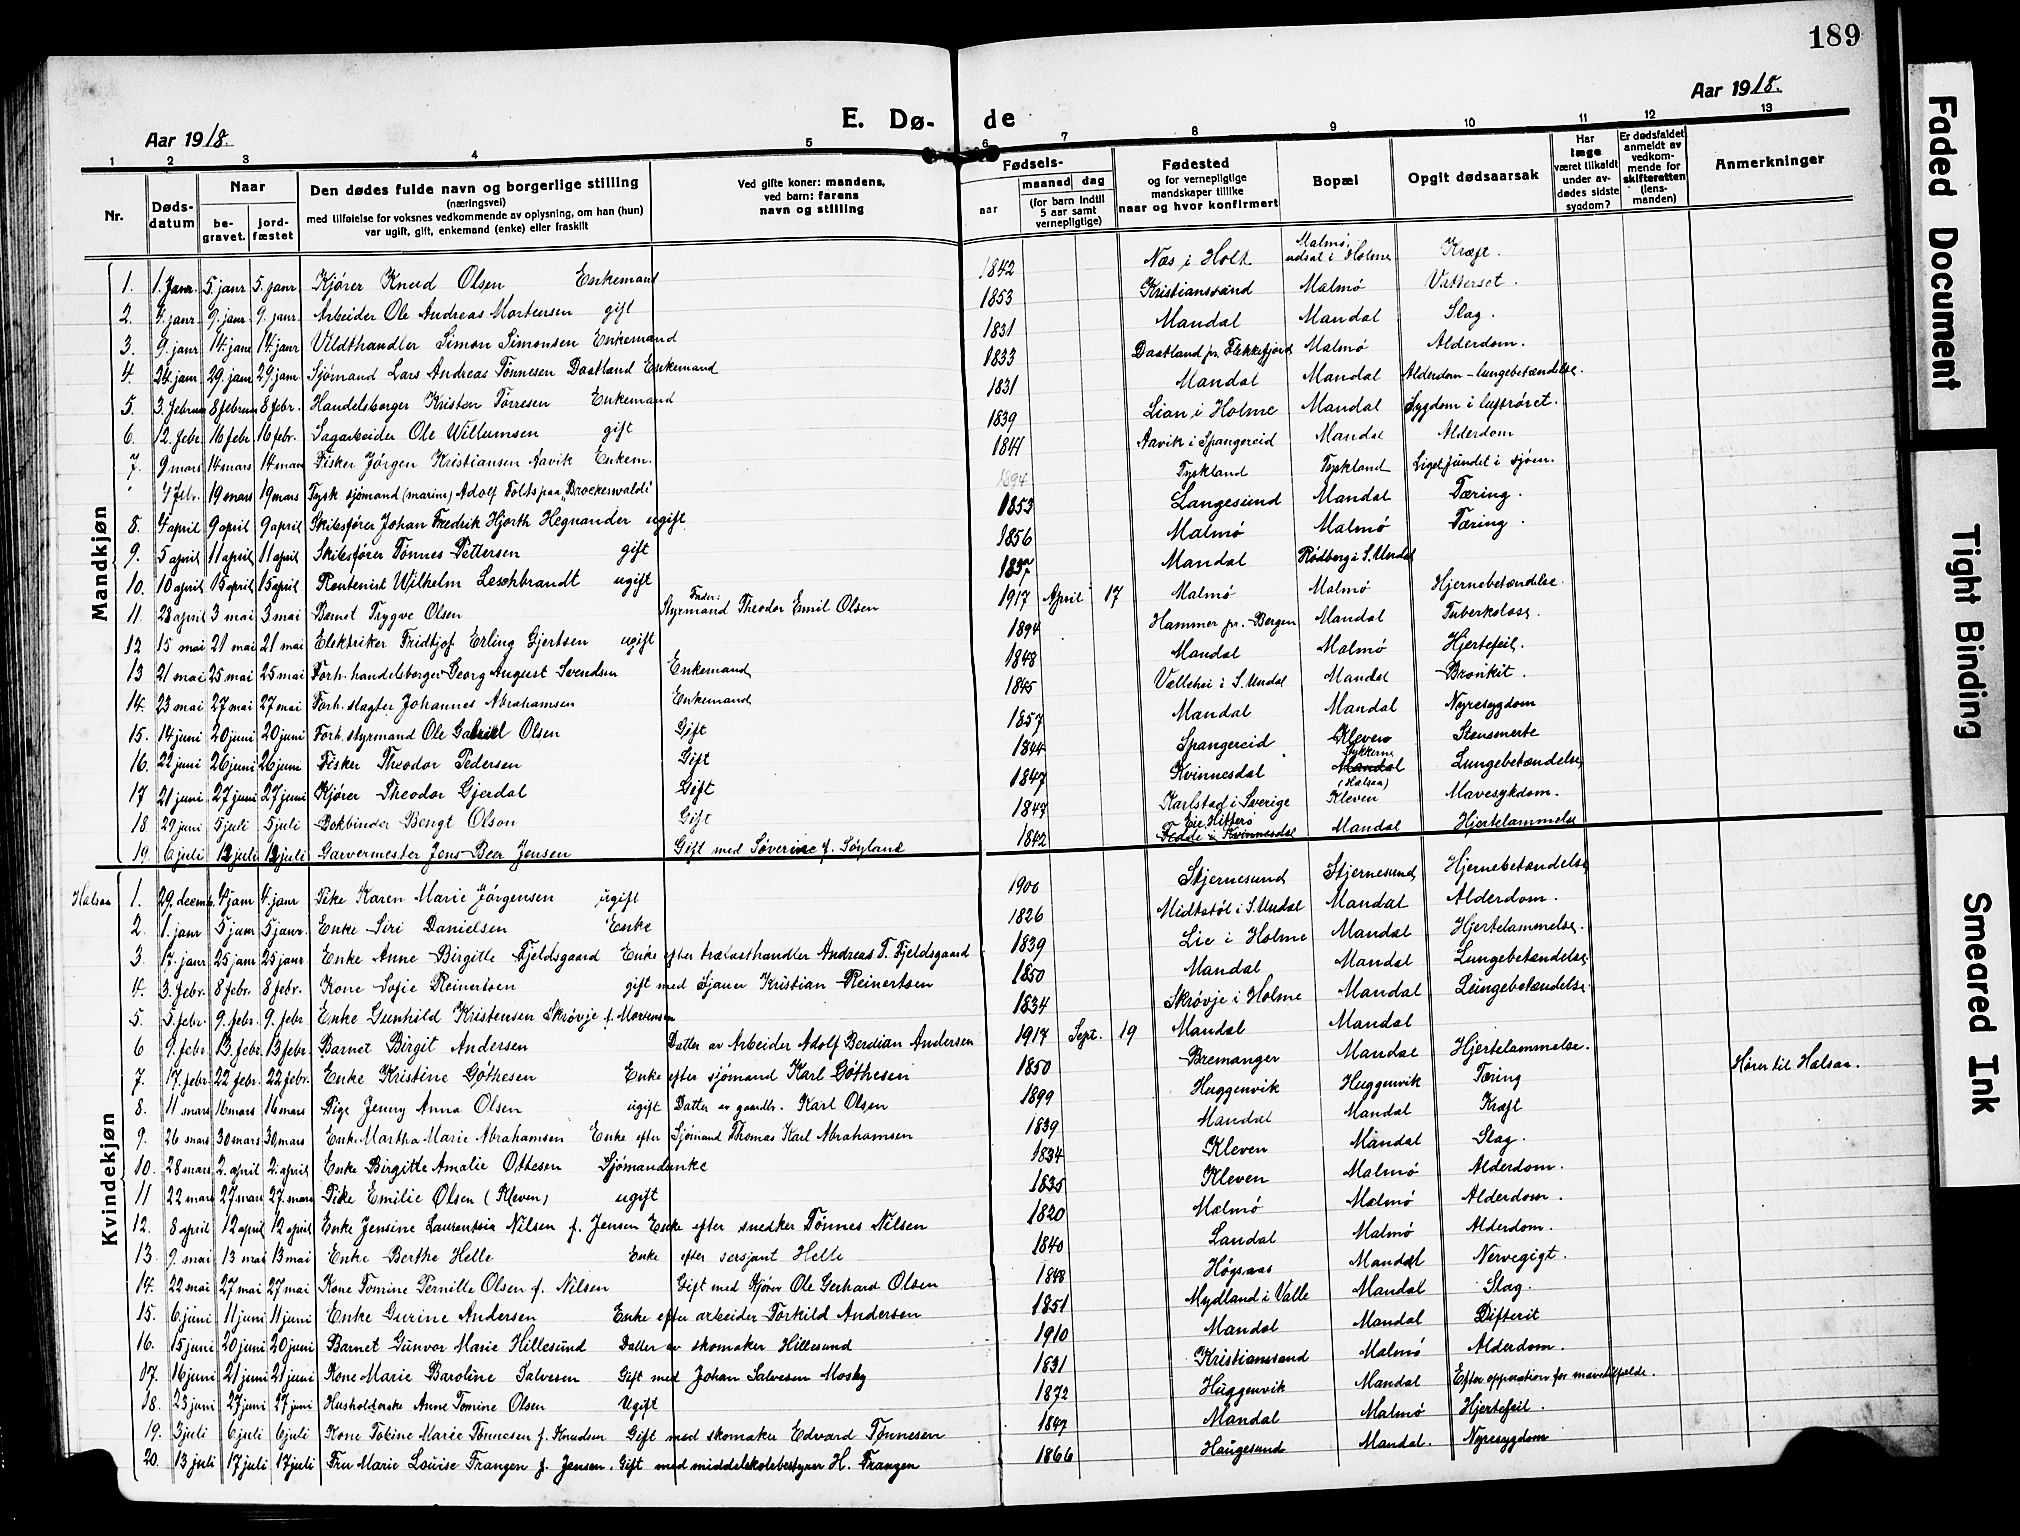 189
Aar 1918.
Aar 1918.
E. Dø- de
1 2 3 4 5 6 7 8 9 10 11 12 13
Nr.
Døds-datum
Naar
be-gravet.
jord-fæstet
Den dødes fulde navn og borgerlige stilling
(næringsvei)
med tilføielse for voksnes vedkommende av oplysning, om han (hun)
var ugift, gift, enkemand (enke) eller fraskilt
Ved gifte koner: mandens,
ved barn: farens
navn og stilling
Fødsels-
aar
maaned dag
(for barn indtil
5 aar samt
vernepligtige)
Fødested
og for vernepligtige
mandskaper tillike
naar og hvor konfirmert
Bopæl
Opgit dødsaarsak
Har
læge
været tilkaldt
under av-
dødes sidste
sygdom?
Er dødsfaldet
anmeldt av
vedkom-
mende for
skifteretten
(lens-
manden)
Anmerkninger
Mandkjøn
1. 1. janr. 5. janr 5. janr Kjører Knud Olsen Enkemand 1842 Næs i Holt Malmø, udsat i Holme Kræft.
2. 4. janr. 9. janr 9. janr. Arbeider Ole Andreas Mortensen gift 1853 Kristianssand Malmø Vattersot.
3. 9. janr 14. janr 14. janr Vildthandler Simon Simonsen Enkemand 1831 Mandal Mandal Slag.
4. 24. janr 29. janr 29. janr Sjømand Lars Andreas Tønnesen Daatland Enkemand 1833 Daatland pr. Flekkefjord Malmø Alderdom.
5. 3. februar 8 februar 8 febr. Handelsborger Kristen Tørresen Enkemand 1831 Mandal Mandal Alderdom - lungebetændelse.
6. 12. febr. 16 febr. 16 febr. Sagarbeider Ole Willumsen gift 1839 Lian i Holme Mandal Sygdom i luftrøret.
7. 9 mars 14 mars 14 mars Fisker Jørgen Kristiansen Aavik Enkem. 1841 Aavik i Spangereid Mandal Alderdom
7 febr. 19 mars 19 mars Tysk sjømand (marine) Adolf Folts paa "Brockenwalde" 1894 Tyskland Tyskland Liget fundet i sjøen.
8. 4 april 9 april 9 april Skibsfører Johan Fredrik Hjorth Hegnander ugift 1853 Langesund Mandal Tæring.
9. 5 april 11 april 11 april Skibsfører Tønnes Pettersen gift 1856 Malmø Malmø Tæring.
10. 10 april 15 april 15 april Rentenist Wilhelm Leschbrandt ugift 1837 Mandal Rødberg i S. Undal
11. 28 april 3 mai 3 mai Barnet Trygve Olsen Fader: Styrmand Theodor Emil Olsen 1917 April 17 Malmø Malmø Hjernebetændelse.
12 15 mai 21 mai 21 mai Elektriker Fridtjof Erling Gjertsen ugift 1894 Hammer pr. Bergen Mandal Tuberkolose.
13 21 mai 25 mai 25 mai Forh. handelsborger Georg August Svendsen Enkemand 1848 Mandal Malmø Hjertefeil.
14. 23 mai 27 mai 27 mai Forh. slagter Johannes Abrahamsen Enkemand 1845 Vallehei i S. Undal Mandal Bronkit.
15. 14 juni 20 juni 20 juni Forh. styrmand Ole Gabriel Olsen Gift 1857 Mandal Mandal Nyresygdom
16. 22 juni 26 juni 26 juni Fisker Theodor Pedersen Gift 1844 Spangereid Kleven Stensmerte
17 21 juni 27 juni 27 juni Kjører Theodor Gjerdal Gift 1847 Kvinnesdal Mandal (Halsaa) Lungebetændelse
18 29 juni 5 juli 5 juli Bokbinder Bengt Olson Gift 1847 Karlstad i Sverige Kleven Mavesykdom.
19. 6 juli 12 juli 12 juli Garvermester Jens Beer Jensen Gift med Søverine f. Søyland 1842 Eie Hitterø Fedde i Kvinnesdal Mandal Hjertelammelse
Kvindekjøn
Halsaa 1. 29. decemb. 4. janr 4. janr Pike Karen Marie Jørgensen ugift 1900 Stjernesund Stjernesund Hjernebetændelse
2. 1. janr 5 janr 5 janr. Enke Siri Danielsen Enke 1826 Midtstøl i S. Undal Mandal Alderdom.
3. 17. janr 25 janr 25 janr Enke Anne Birgitte Fjeldsgaard Enke efter trælasthandler Andreas T. Fjeldsgaard 1839 Lie i Holme Mandal Hjertelammelse.
4. 3. febr. 8 febr. 8 febr. Kone Sofie Reinertsen gift med Sjauer Kristian Reinertsen 1850 Mandal Mandal Lungebetændelse
5. 5 febr. 9. febr. 9. febr Enke Gunhild Kristensen Skrøvje f. Mortensen 1834 Skrøvje i Holme Mandal Lungebetændelse.
6 9. febr. 13 febr. 13 febr. Barnet Birgit Andersen Datter av Arbeider Adolf Berdian Andersen 1917 Sept. 19 Mandal Mandal
7. 17 febr. 22 febr. 22 febr. Enke Kristine Gøthesen Enke efter sjømand Karl Gøthesen 1850 Bremanger Mandal Hjertelammelse.
8. 11 mars 16 mars 16 mars Pige Jenny Anna Olsen ugift Datter av gaardbr. Karl Olsen 1899 Huggenvik Huggenvik Tæring Hører til Halsaa.
9. 26 mars 30 mars 30 mars Enke Martha Marie Abrahamsen Enke efter Sjømand Thomas Karl Abrahamsen 1839 Mandal Mandal Kræft
10. 28 mars 2. april 2. april Enke Birgitte Amalie Ottesen Sjømandsenke 1834 Kleven Mandal Slag.
11 22 mars 27 mars 27. mars Pike Emilie Olsen (Kleven) ugift 1835 Kleven Malmø Alderdom.
12. 8 april 12 april 12 april Enke Jensine Laurentsia Nilsen f. Jensen Enke efter snedker Tønnes Nilsen 1820 Malmø Malmø Alderdom.
13. 9 mai 13 mai 13 mai Enke Berthe Helle Enke efter sersjant Helle 1840 Landal Malmø Alderdom.
14. 22 mai 27 mai 27 mai Kone Tomine Pernille Olsen f. Nilsen Gift med Kjører Ole Gerhard Olsen 1848 Høgsaas Mandal Nervegigt.
15. 6 juni 11 juni 11 juni Enke Gurine Andersen Enke efter arbeider Torkild Andersen 1851 Mydland i Valle Mandal Slag.
16. 15 juni 20 juni 20 juni Barnet Gunvor Marie Hillesund Datter av skomaker Hillesund 1910 Mandal Mandal Difterit
17. 16 juni 21 juni 21 juni Kone Marie Baroline Salvesen Gift med Johan Salvesen Mosby 1831 Kristianssand Malmø Alderdom.
18. 23 juni 27 juni 27 juni Husholderske Anne Tomine Olsen Ugift 1872 Huggenvik Mandal Efter opperation for mavetilfælde.
19. 3 juli 6 juli 6 juli Kone Tobine Marie Tønnesen f. Knudsen Gift med skomaker Edvard Tønnesen 1847 Mandal Malmø Hjertefeil.
20. 13 juli 17 juli 17 juli Fru Marie Louise Frangen f. Jensen. Gift med middelskolebestyrer H. Frangen 1866 Haugesund Mandal. Nyresygdom
Faded Document
Tight Binding
Smeared Ink